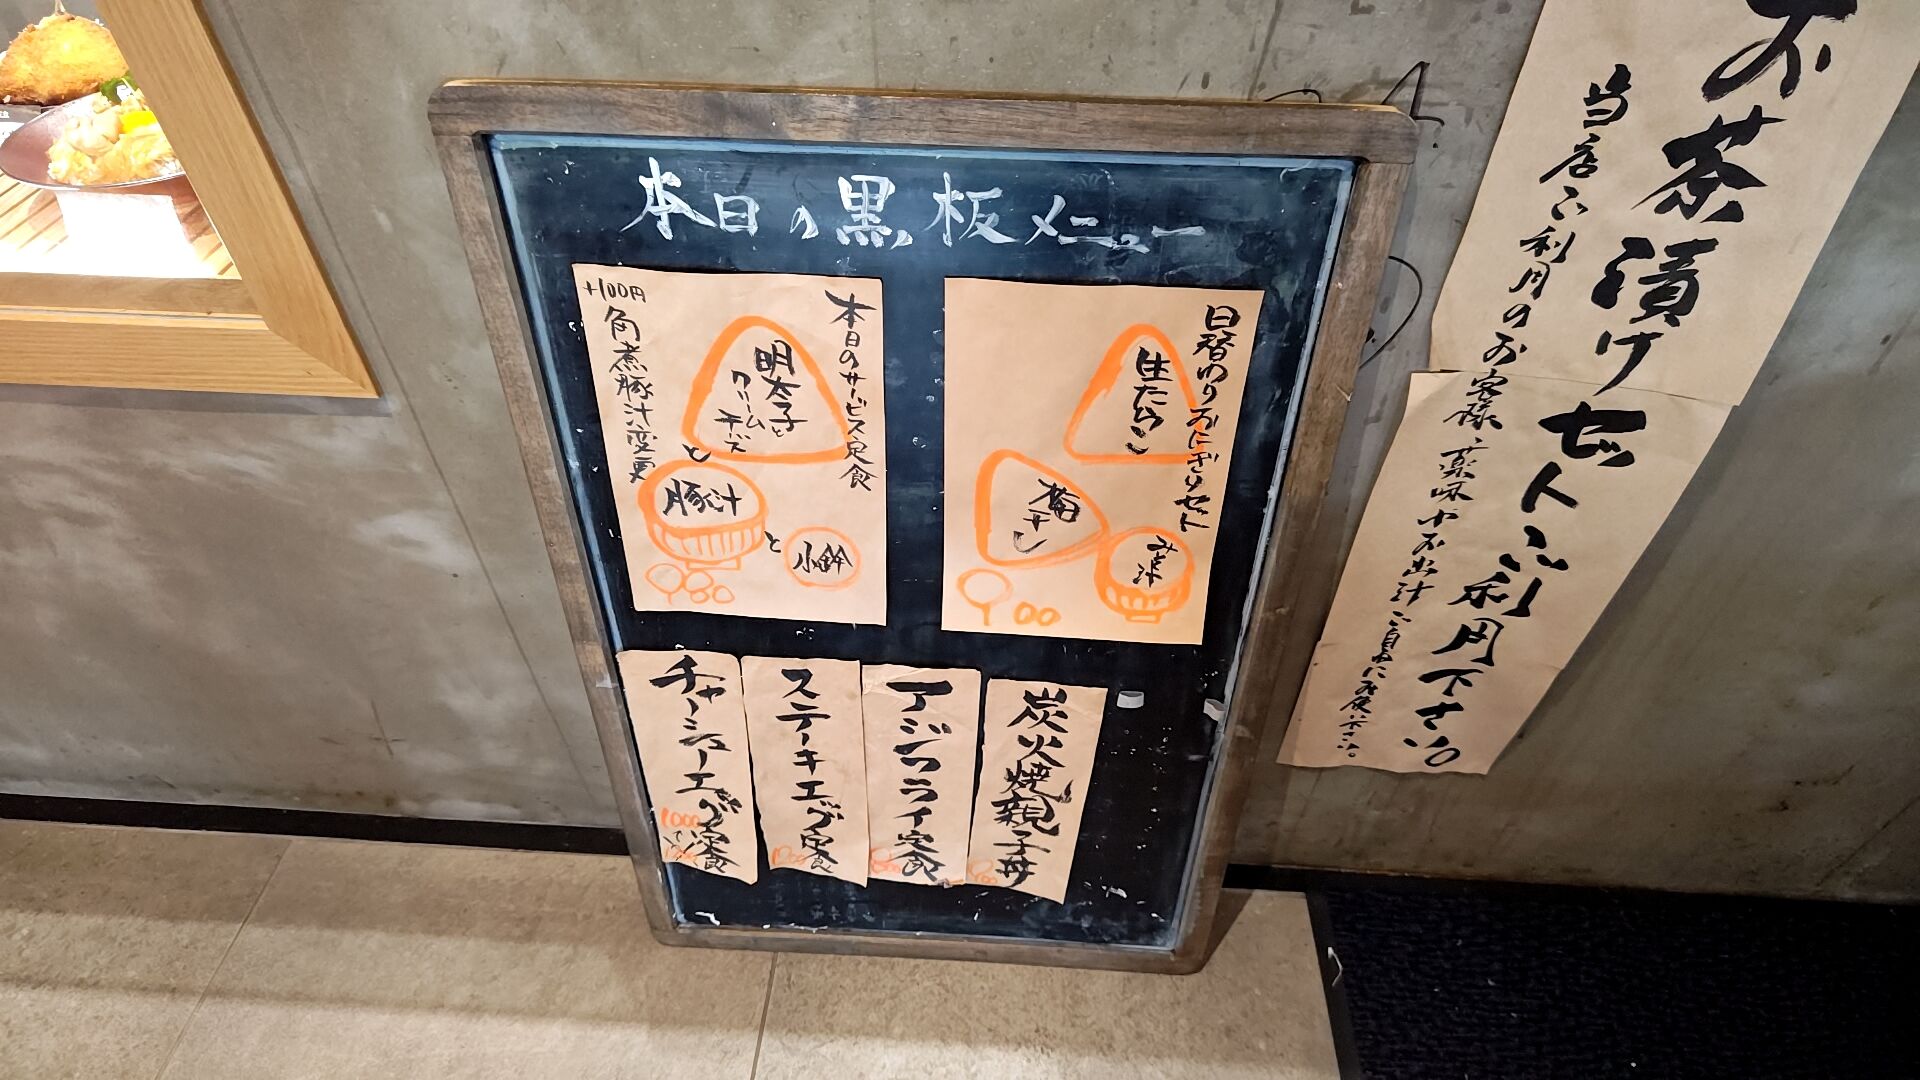 本日の黒板メニュー
本日のサービス定食
明太子と
クリーム
チーズ
と
豚汁
と
小鉢
+100円
角煮豚汁変更
日替わりおにぎりセット
生たらこ
梅
みそ汁
チャーシューエッグ定食
1000
ステーキエッグ定食
アジフライ定食
炭火焼親子丼
お茶漬けセットご利用下さい。
当店ご利用のお客様
薬味やお出汁ご自由にお使い下さい。